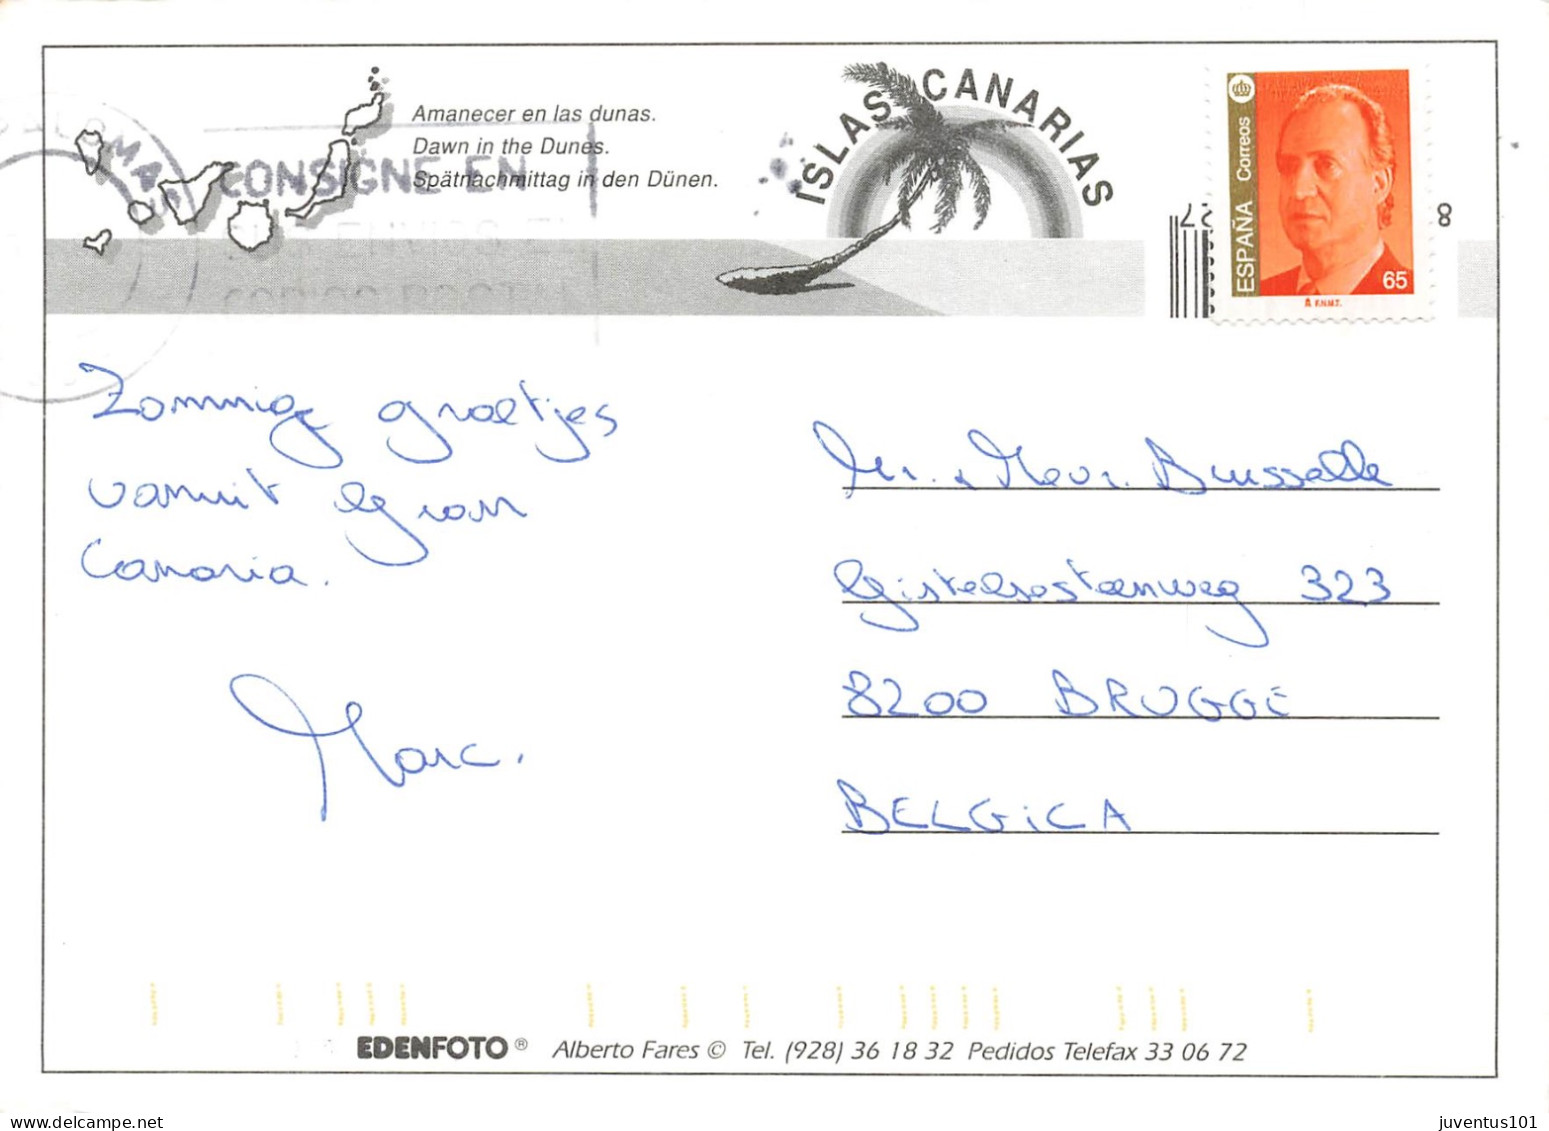 Amanecer en las dunas.
Dawn in the Dunes.
Spätnachmittag in den Dünen.
CONSIGNE EN
ISLAS CANARIAS
ESPAÑA Correos
65
F.N.M.T.
8
Zonnige groetjes
vanuit Gran
Canaria.
Marc.
Mr. & Mevr. Brusselle
Gistelsesteenweg 323
8200 BRUGGE
BELGiCA
EDENFOTO® Alberto Fares © Tel. (928) 36 18 32 Pedidos Telefax 33 06 72
juventus101